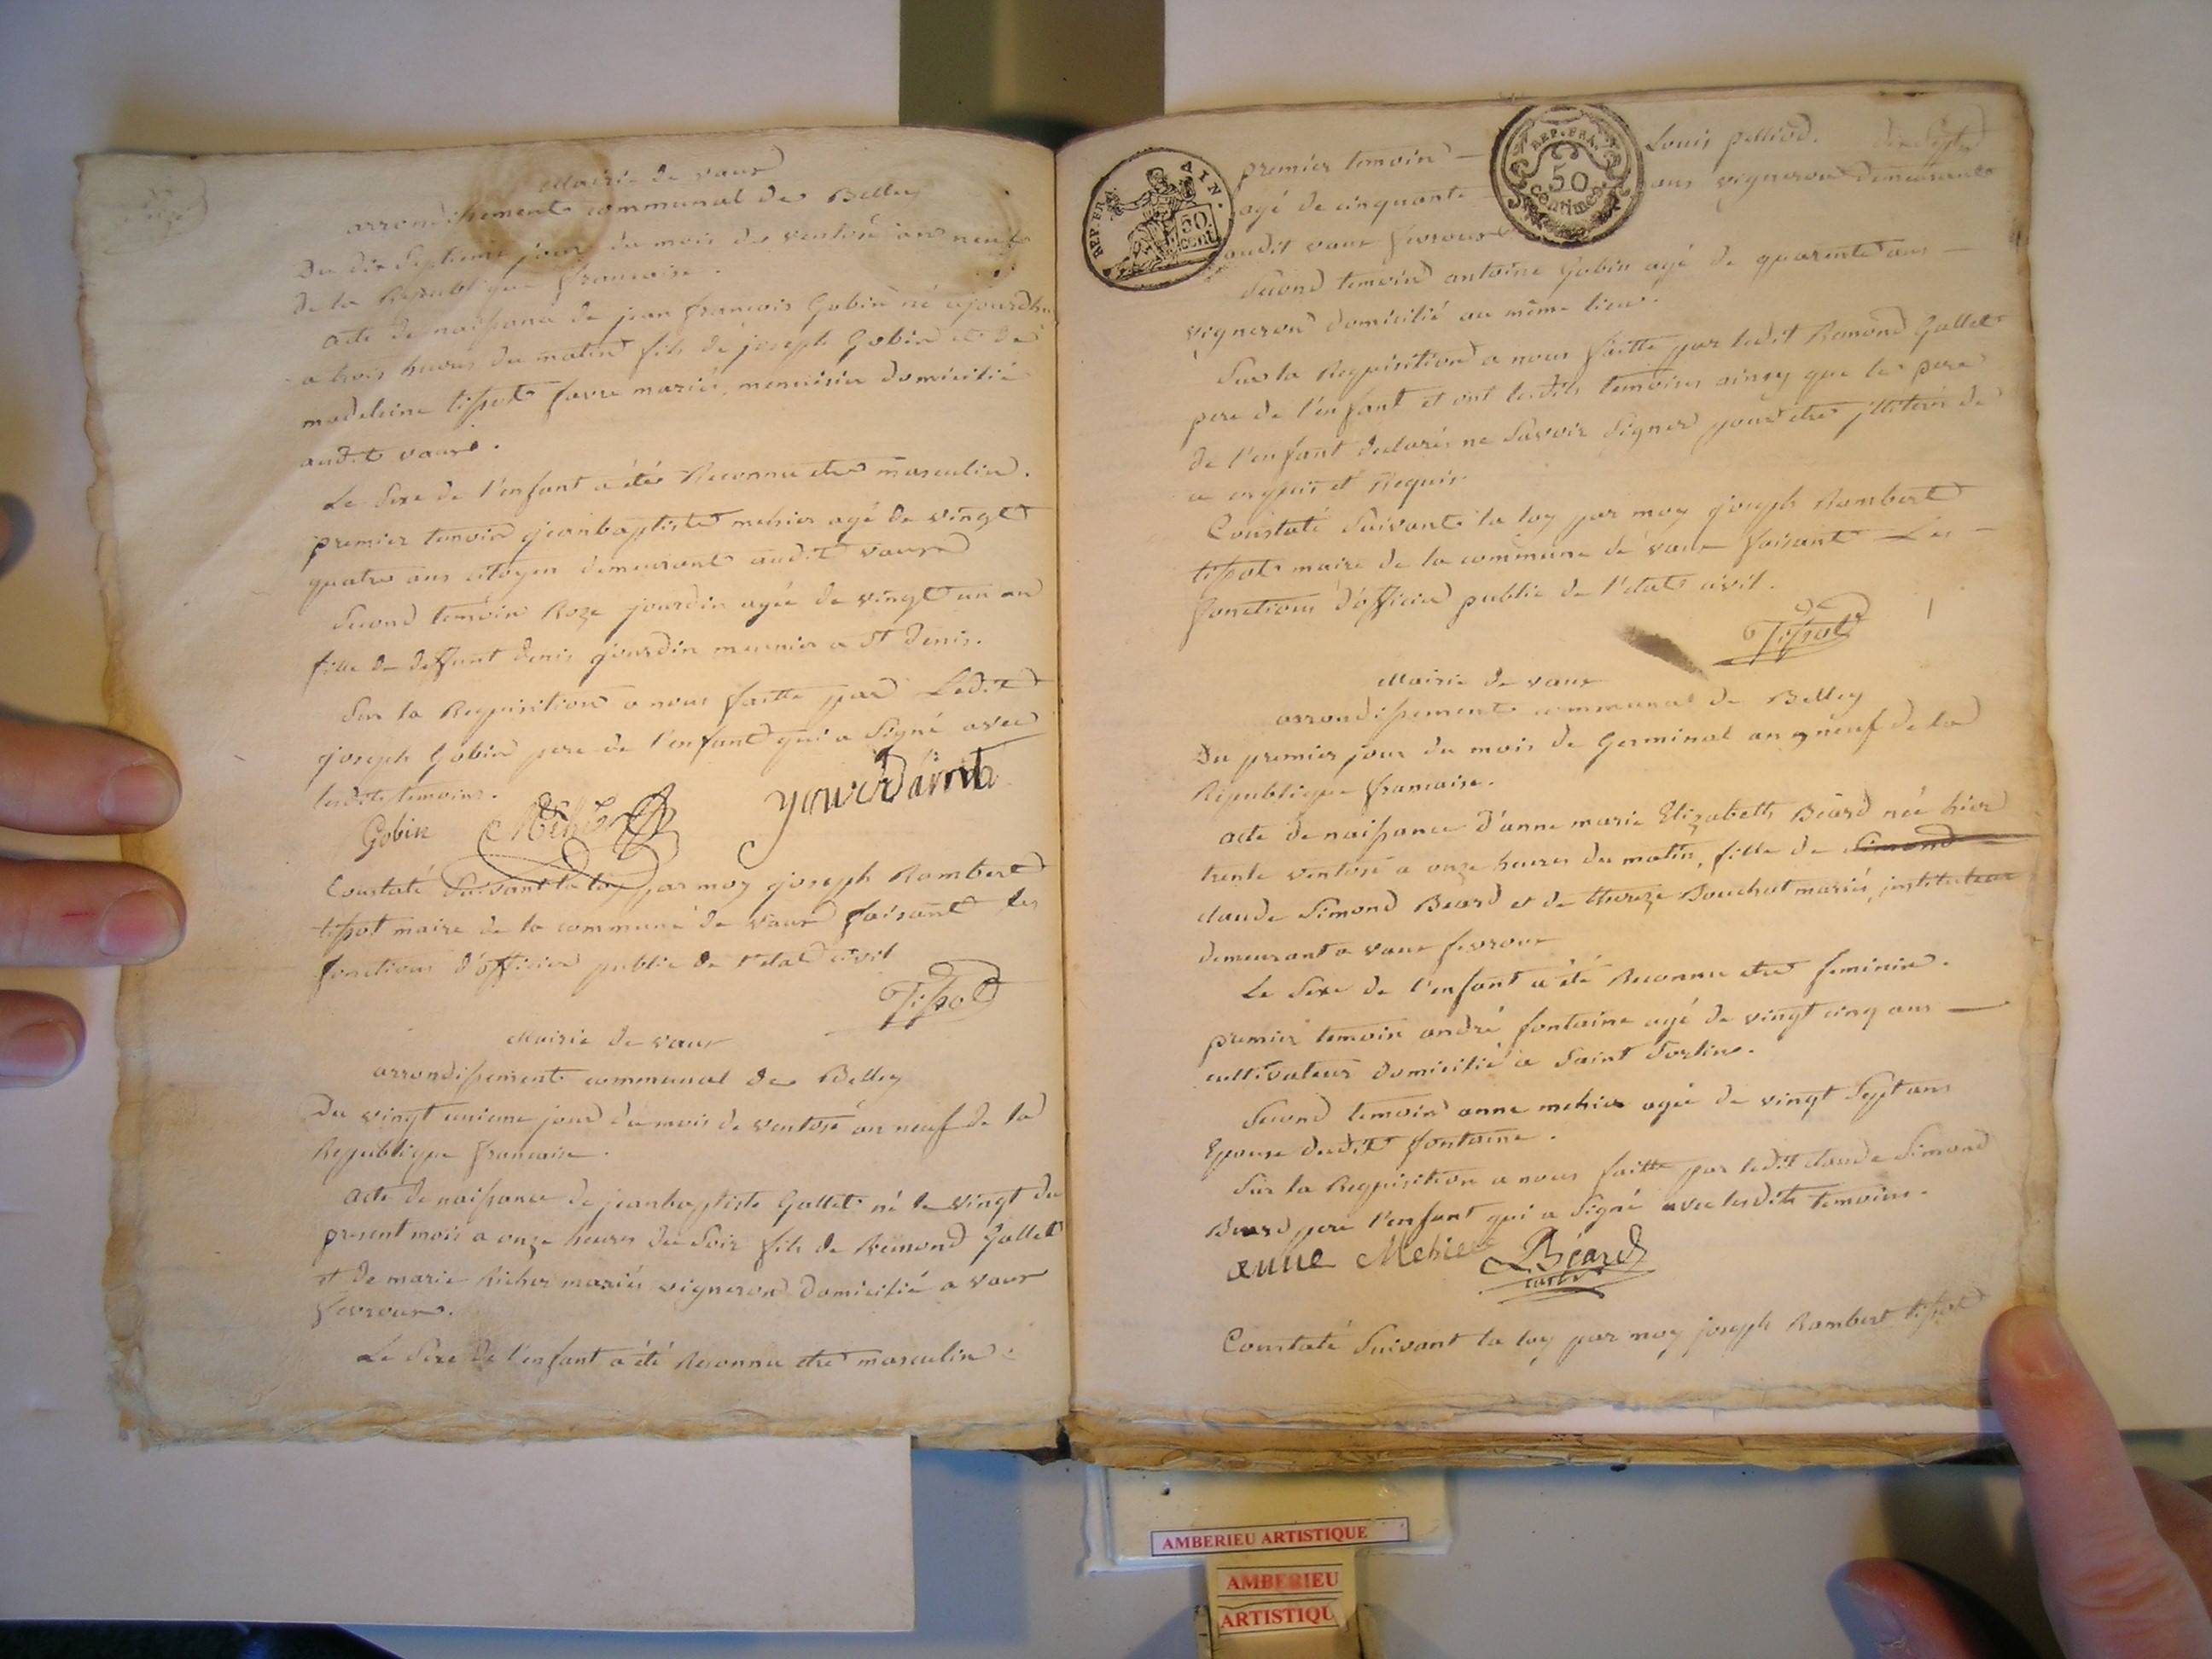 Mairie de vaux
arrondissement communal de Belley
Du dix septieme jour du mois de ventose an neuf
de la Republique francaise.
acte de naissance de jean francois Gobin né ajourdhu
a trois heures du matin fils de joseph Gobin et de
madeleine tissot favre mariés, menuisier domicilié
audit vaux.
Le Sexe de l'enfant a étés Reconnu etre masculin.
premier temoin jeanbaptiste mehier agé de vingt
quatre ans citoyen demeurant audit vaux
Second temoin Roze jourdin agée de vingt un an
fille de deffunt denis jourdin meunier a St denis.
Sur la Requisition a nous faitte par Ledit
joseph Gobin pere de l'enfant qui a Signé avec
lesdits temoins.
Gobin
Constaté Suivant la loy par moy joseph Rambert
tissot maire de la commune de vaux faisant les
fonctions d'officier public de l'etat civil
Tissot
Mairie de vaux
arrondissement communal de Belley
Du vingt unieme jour du mois de ventose an neuf de la
Republique francaise.
Acte de naissance de jeanbaptiste Gallet né le vingt du
present mois a onze heures du Soir fils de Remond Gallet
et de marie Richer mariés vigneron domicilié a vaux
fevroux.
Le Sexe de l'enfant a été Reconnu etre masculin
REP. FRA. AIN.
50 cent
REP. FRA.
50
centimes
premier temoin — Louis
agé de cinquante ans vigneron demeurant
audit vaux fevroux
Second temoin antoine Gobin agé de quarente ans
vigneron domicilié au même lieu.
Sur la Requisition a nous faitte par ledit Remond Gallet
pere de l'enfant et ont lesdits temoins ainsy que le pere
de l'enfant declarés ne Savoir Signer pour etre jlliterés de
ce enquis et Requis.
Constaté Suivant la loy par moy joseph Rambert
tissot maire de la commune de vaux faisant Les —
fonctions d'officier public de l'etat civil.
Tissot
Mairie de vaux
arrondissement communal de Belley
Du premier jour du mois de Germinal an neuf de la
Republique francaise.
acte de naissance d'anne marie Elizabeth Béard née hier
trente ventose a onze heures du matin, fille de Simond
claude Simond Béard et de thereze Bouchut mariés, instituteur
demeurant a vaux fevroux
Le Sexe de l'enfant a été Reconnu etre feminin.
premier temoin andré fontaine agé de vingt cinq ans —
cultivateur domicilié a Saint Sorlin.
Second temoin anne mehier agée de vingt Sept ans
Epouse dudit fontaine.
Sur la Requisition a nous faitte par ledit claude Simond
Beard pere l'enfant qui a Signé avec lesdits temoins.
anne Mehier Béard
Constaté Suivant la loy par moy joseph Rambert tissot
AMBERIEU ARTISTIQUE
AMBERIEU
ARTISTIQU